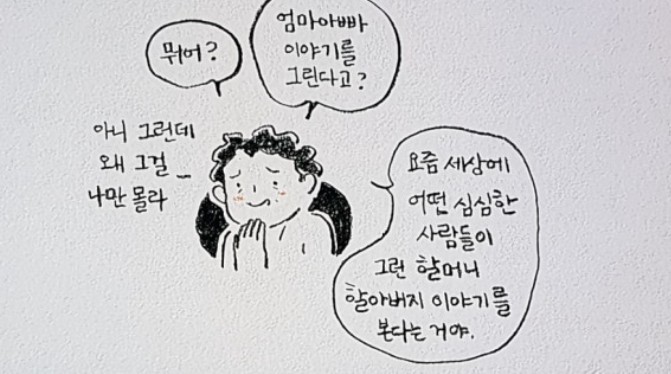 뭐어?
엄마아빠
이야기를
그린다고?
아니 그런데
왜 그걸
나만 몰라
요즘 세상에
어떤 심심한
사람들이
그런 할머니
할아버지 이야기를
본다는 거야.